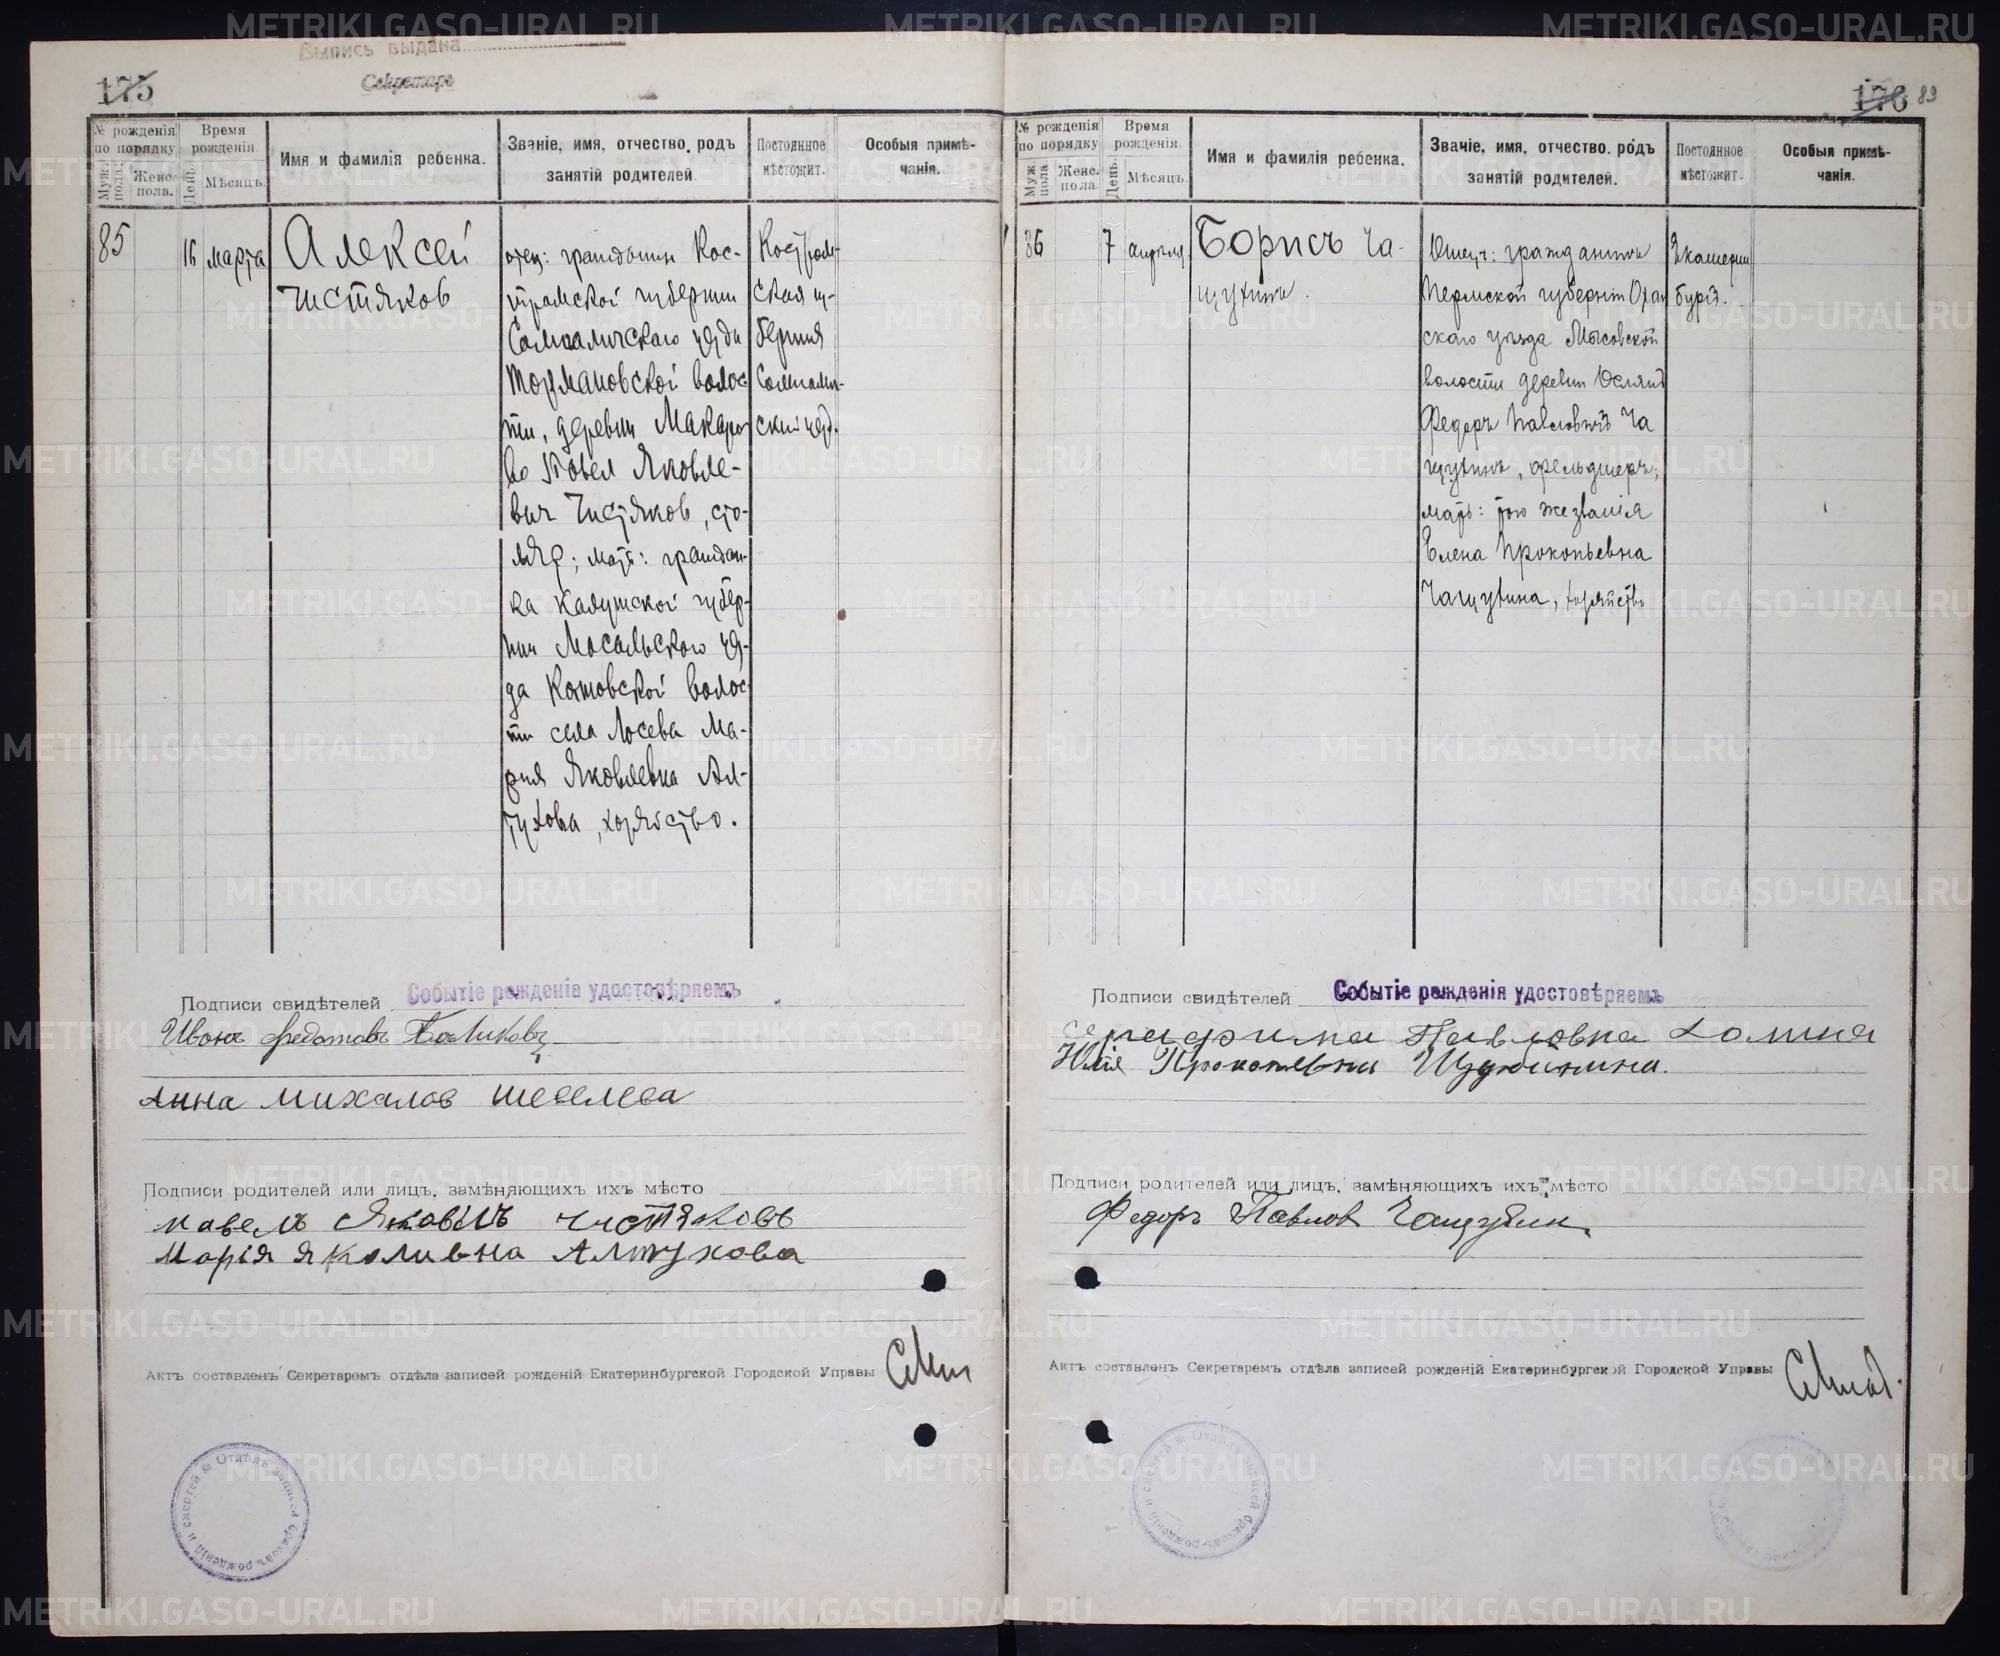 Выпись выдана
Секретарь
175
№ рожденія по порядку
Муж. пола.
Женс. пола.
Время рожденія.
День.
Мѣсяцъ.
Имя и фамилія ребенка.
Званіе, имя, отчество, родъ
занятій родителей.
Постоянное
мѣстожит.
Особыя примѣ-
чанія.
85
16
марта
Алексей
Чистяков
отец: гражданин Кос-
тромской губернии
уезда
волос-
ти, деревни Макаро-
во Павел Яковле-
вич Чистяков, сто-
ляр; мать: граждан-
ка Калужской губер-
нии Мосальского уез-
да Котовской волос-
ти села Лосева Ма-
рия Яковлевна Ал-
тухова, хозяйство.
Костром-
ская гу-
берния
ский уезд.
Подписи свидѣтелей
Событіе рожденія удостовѣряемъ
Иванъ Федотовъ
Анна Михалов Шевелева
Подписи родителей или лицъ, замѣняющихъ ихъ мѣсто
Павелъ Яковлъ Чистяковъ
Марія Яколивна Алтухова
Актъ составленъ Секретаремъ отдѣла записей рожденій Екатеринбургской Городской Управы
Отдѣлъ записей браковъ рожденій и смертей
176
89
№ рожденія по порядку
Муж. пола
Женс. пола
Время рожденія.
День.
Мѣсяцъ.
Имя и фамилія ребенка.
Званіе, имя, отчество. родъ
занятій родителей.
Постоянное
мѣстожит.
Особыя примѣ-
чанія.
86
7
апреля
Борисъ Ча-
щухинъ.
Отецъ: гражданинъ
Пермской губерніи Охан
скаго уѣзда Мысовской
волости деревни
Федоръ Павловичъ Ча
щухинъ, фельдшеръ;
мать: того же званія
Елена Прокопьевна
Чащухина, хозяйство
Екатерин
бургъ.
Подписи свидѣтелей
Событіе рожденія удостовѣряемъ
Серафима Павловна
Юлія Прокопьевна
Подписи родителей или лицъ, замѣняющихъ ихъ мѣсто
Федоръ Павлов Чащухин
Актъ составленъ Секретаремъ отдѣла записей рожденій Екатеринбургской Городской Управы
Отдѣлъ записей браковъ рожденій и смертей
METRIKI.GASO-URAL.RU